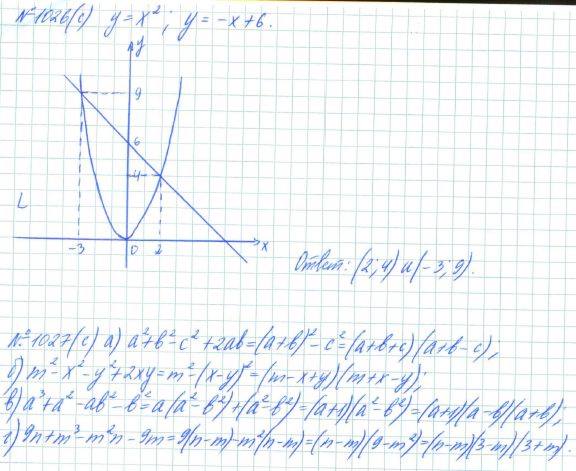 №1026(с) y = x²; y = -x+6.
y
9
6
4
L
-3 0 2 x
Ответ: (2;4) и (-3;9).
№1027(с) а) a²+b²-c²+2ab=(a+b)²-c²=(a+b+c)(a+b-c);
б) m²-x²-y²+2xy=m²-(x-y)²=(m-x+y)(m+x-y);
в) a³+a²-ab²-b²=a(a²-b²)+(a²-b²)=(a+1)(a²-b²)=(a+1)(a-b)(a+b);
г) 9n+m³-m²n-9m=9(n-m)-m²(n-m)=(n-m)(9-m²)=(n-m)(3-m)(3+m).